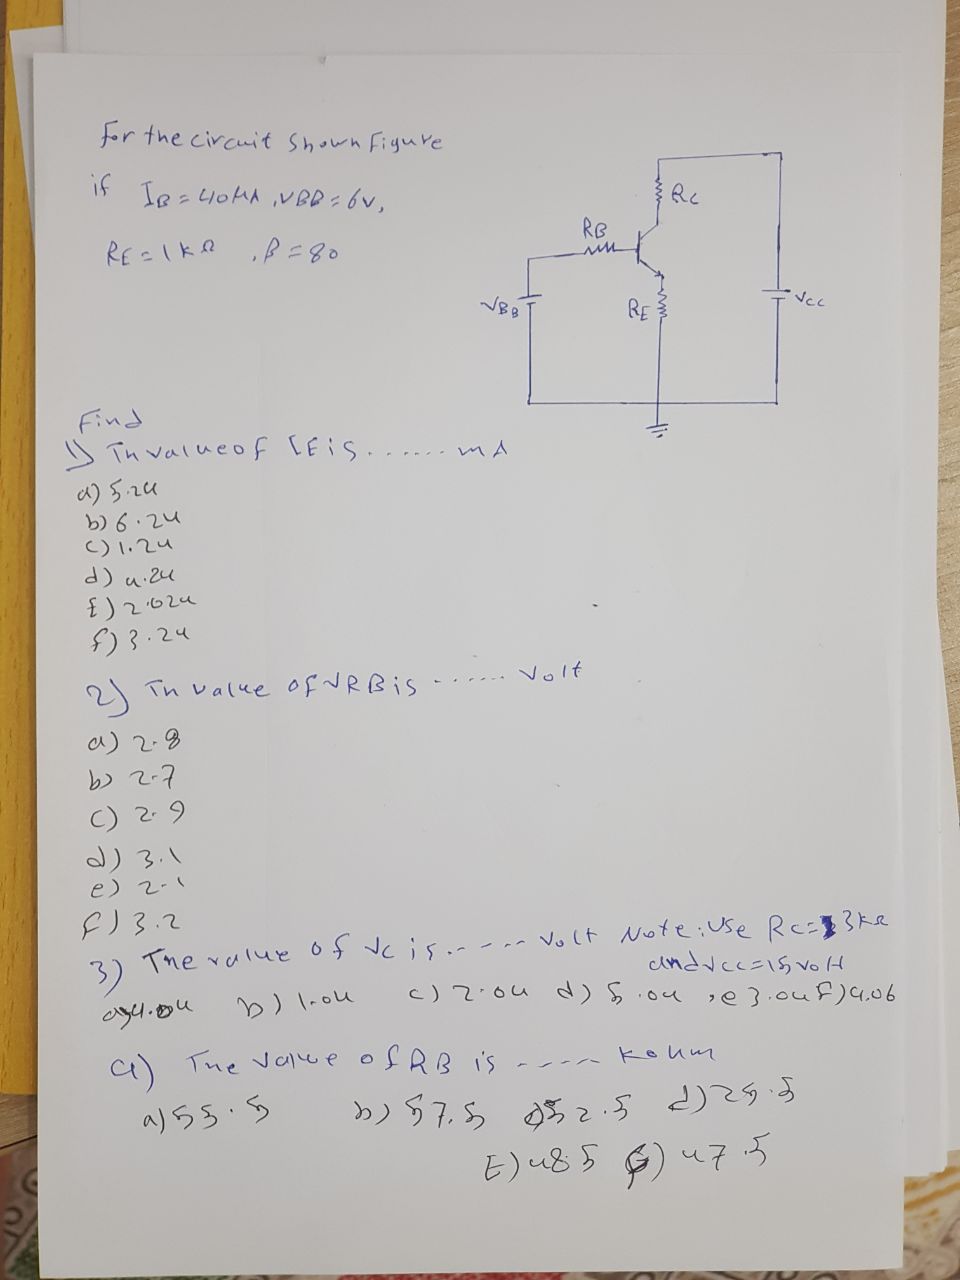 for the circuit shown figure
if IB = 40MA, VBB = 6v,
RE = 1kΩ , β = 80
RC
RB
VBB
RE
VCC
Find
1) Th value of IE is ....... mA
a) 5.24
b) 6.24
c) 1.24
d) 4.24
E) 2.024
f) 3.24
2) Th value of VRB is ...... Volt
a) 2.8
b) 2.7
c) 2.9
d) 3.1
e) 2.1
f) 3.2
3) The value of Vc is ..---- Volt Note: Use Rc = 3kΩ
and Vcc = 15 volt
a) 4.04 b) 1.04 c) 2.04 d) 5.04 , e 3.04 F) 4.06
4) The value of RB is ---- kohm
a) 55.5 b) 57.5 c) 52.5 d) 25.5
E) 48.5 ) 47.5